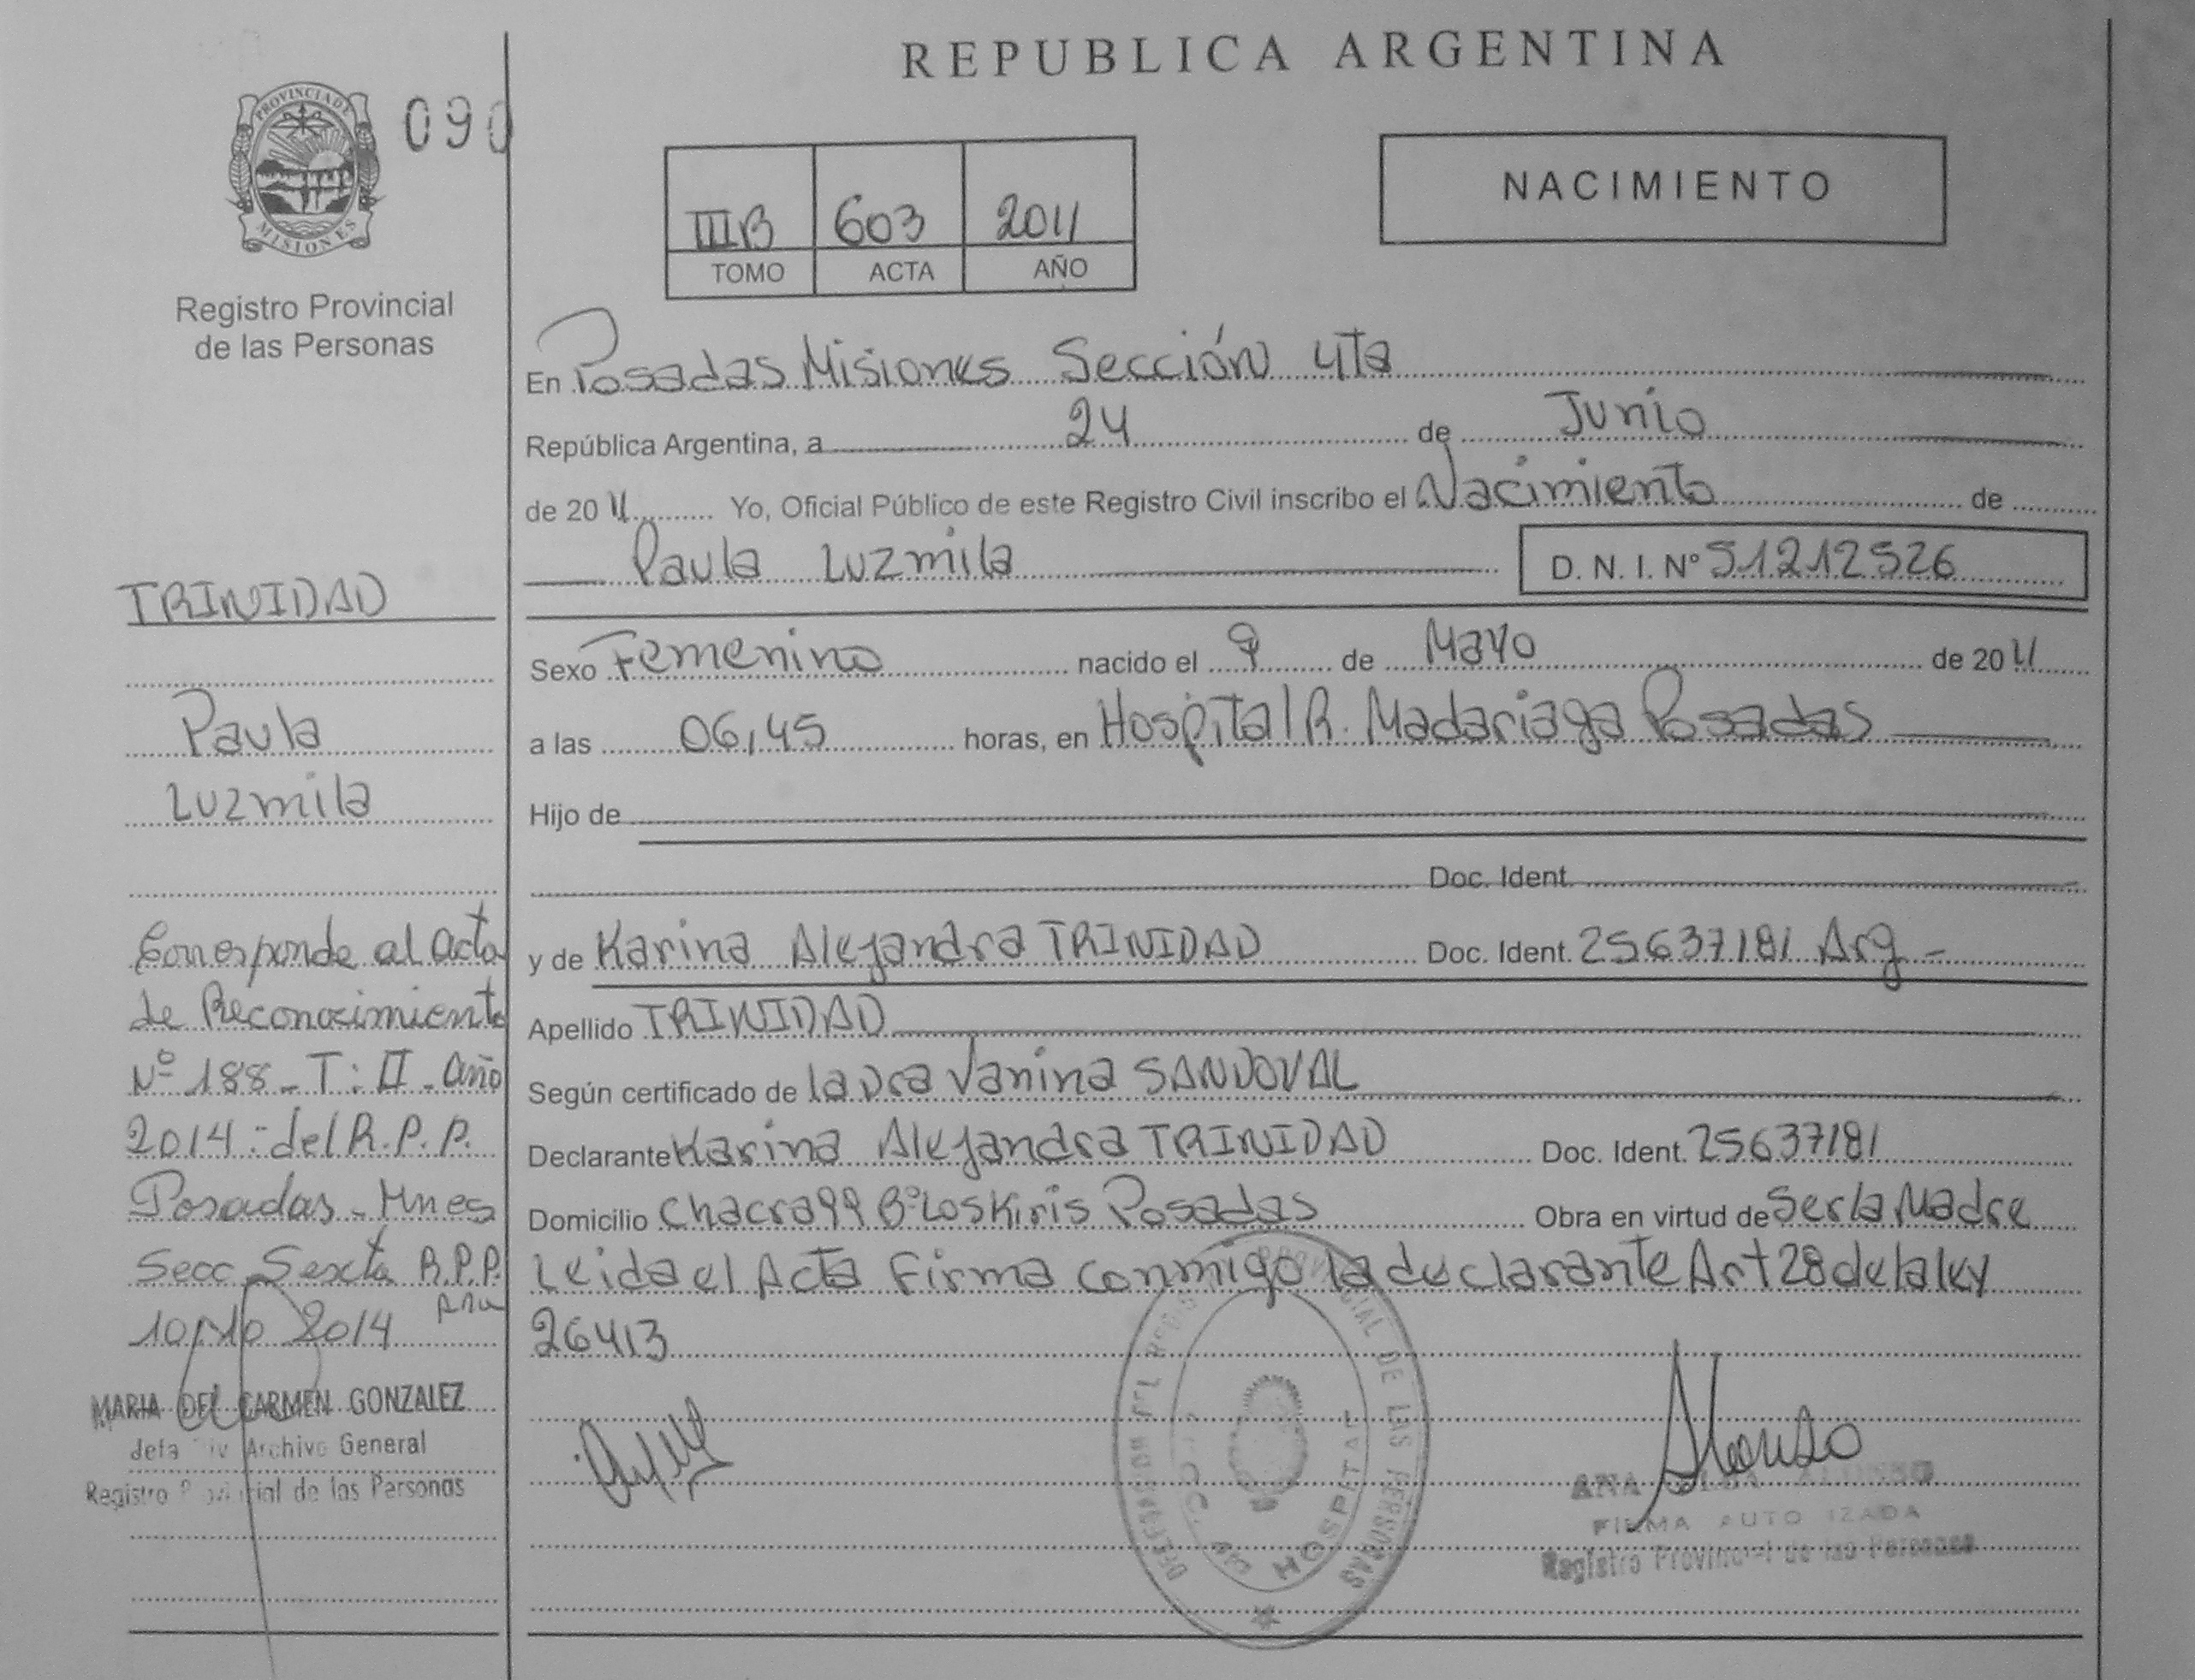 REPUBLICA ARGENTINA
PROVINCIA DE
MISIONES
090
Registro Provincial
de las Personas
IIIB 603 2011
TOMO ACTA AÑO
NACIMIENTO
En Posadas Misiones Sección 4ta
República Argentina, a 24 de Junio
de 2011 Yo, Oficial Público de este Registro Civil inscribo el Nacimiento de
Paula Luzmila D. N. I. Nº 51212526
Sexo Femenino nacido el 9 de Mayo de 2011
a las 06,45 horas, en Hospital R. Madariaga Posadas
Hijo de
Doc. Ident.
y de Karina Alejandra TRINIDAD Doc. Ident. 25637181 Arg -
Apellido TRINIDAD
Según certificado de la Dra Vanina SANDOVAL
Declarante Karina Alejandra TRINIDAD Doc. Ident. 25637181
Domicilio Chacra 99 Bº Los Kiris Posadas Obra en virtud de Ser la Madre
Leida el Acta Firma conmigo la declarante Art 28 de la ley
26413
TRINIDAD
Paula
Luzmila
Corresponde al acta
de Reconocimiento
Nº 188 - T: II - Año
2014 : del R. P. P.
Posadas - Mnes
Secc Sexta R.P.P.
10/10 2014
MARIA DEL CARMEN GONZALEZ
Jefa Div Archivo General
Registro Provincial de las Personas
PROVINCIAL DE LAS PERSONAS
HOSPITAL
Alonso
ANA ALONSO
FIRMA AUTORIZADA
Registro Provincial de las Personas